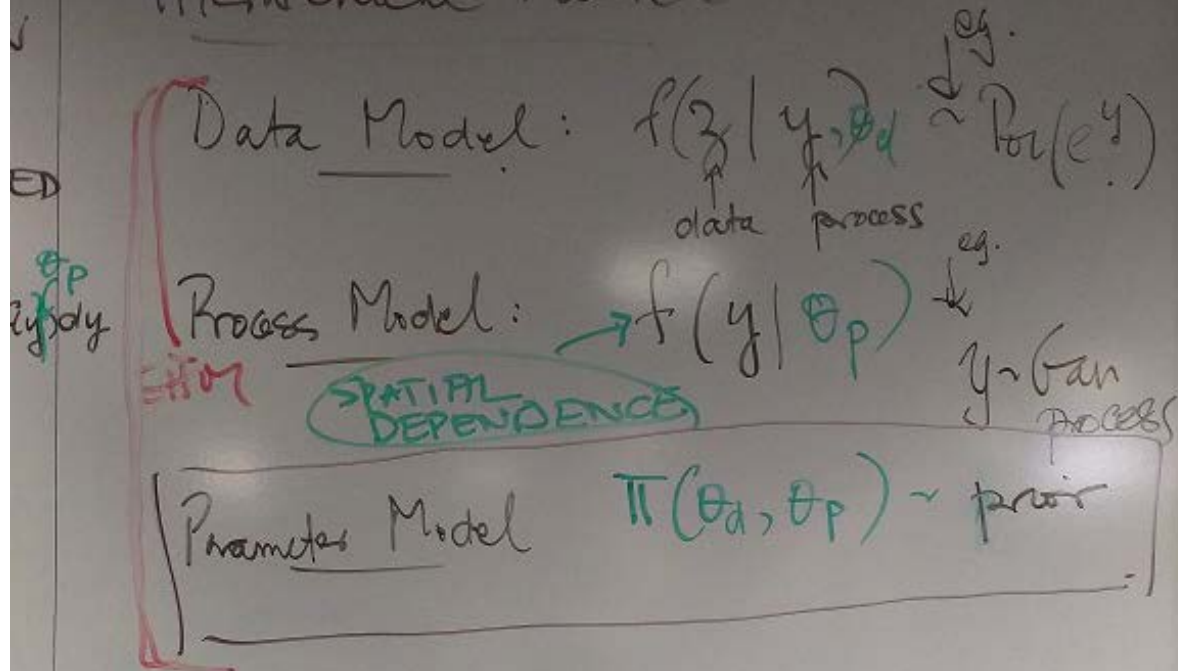 eg.
Data Model: f(z | y, θd) ~ Poi(e^y)
ED
data process
θp
eg.
dy
Process Model: f(y | θp)
y ~ Gau
PROCESS
SPATIAL
DEPENDENCE
Parameter Model π(θd, θp) ~ prior